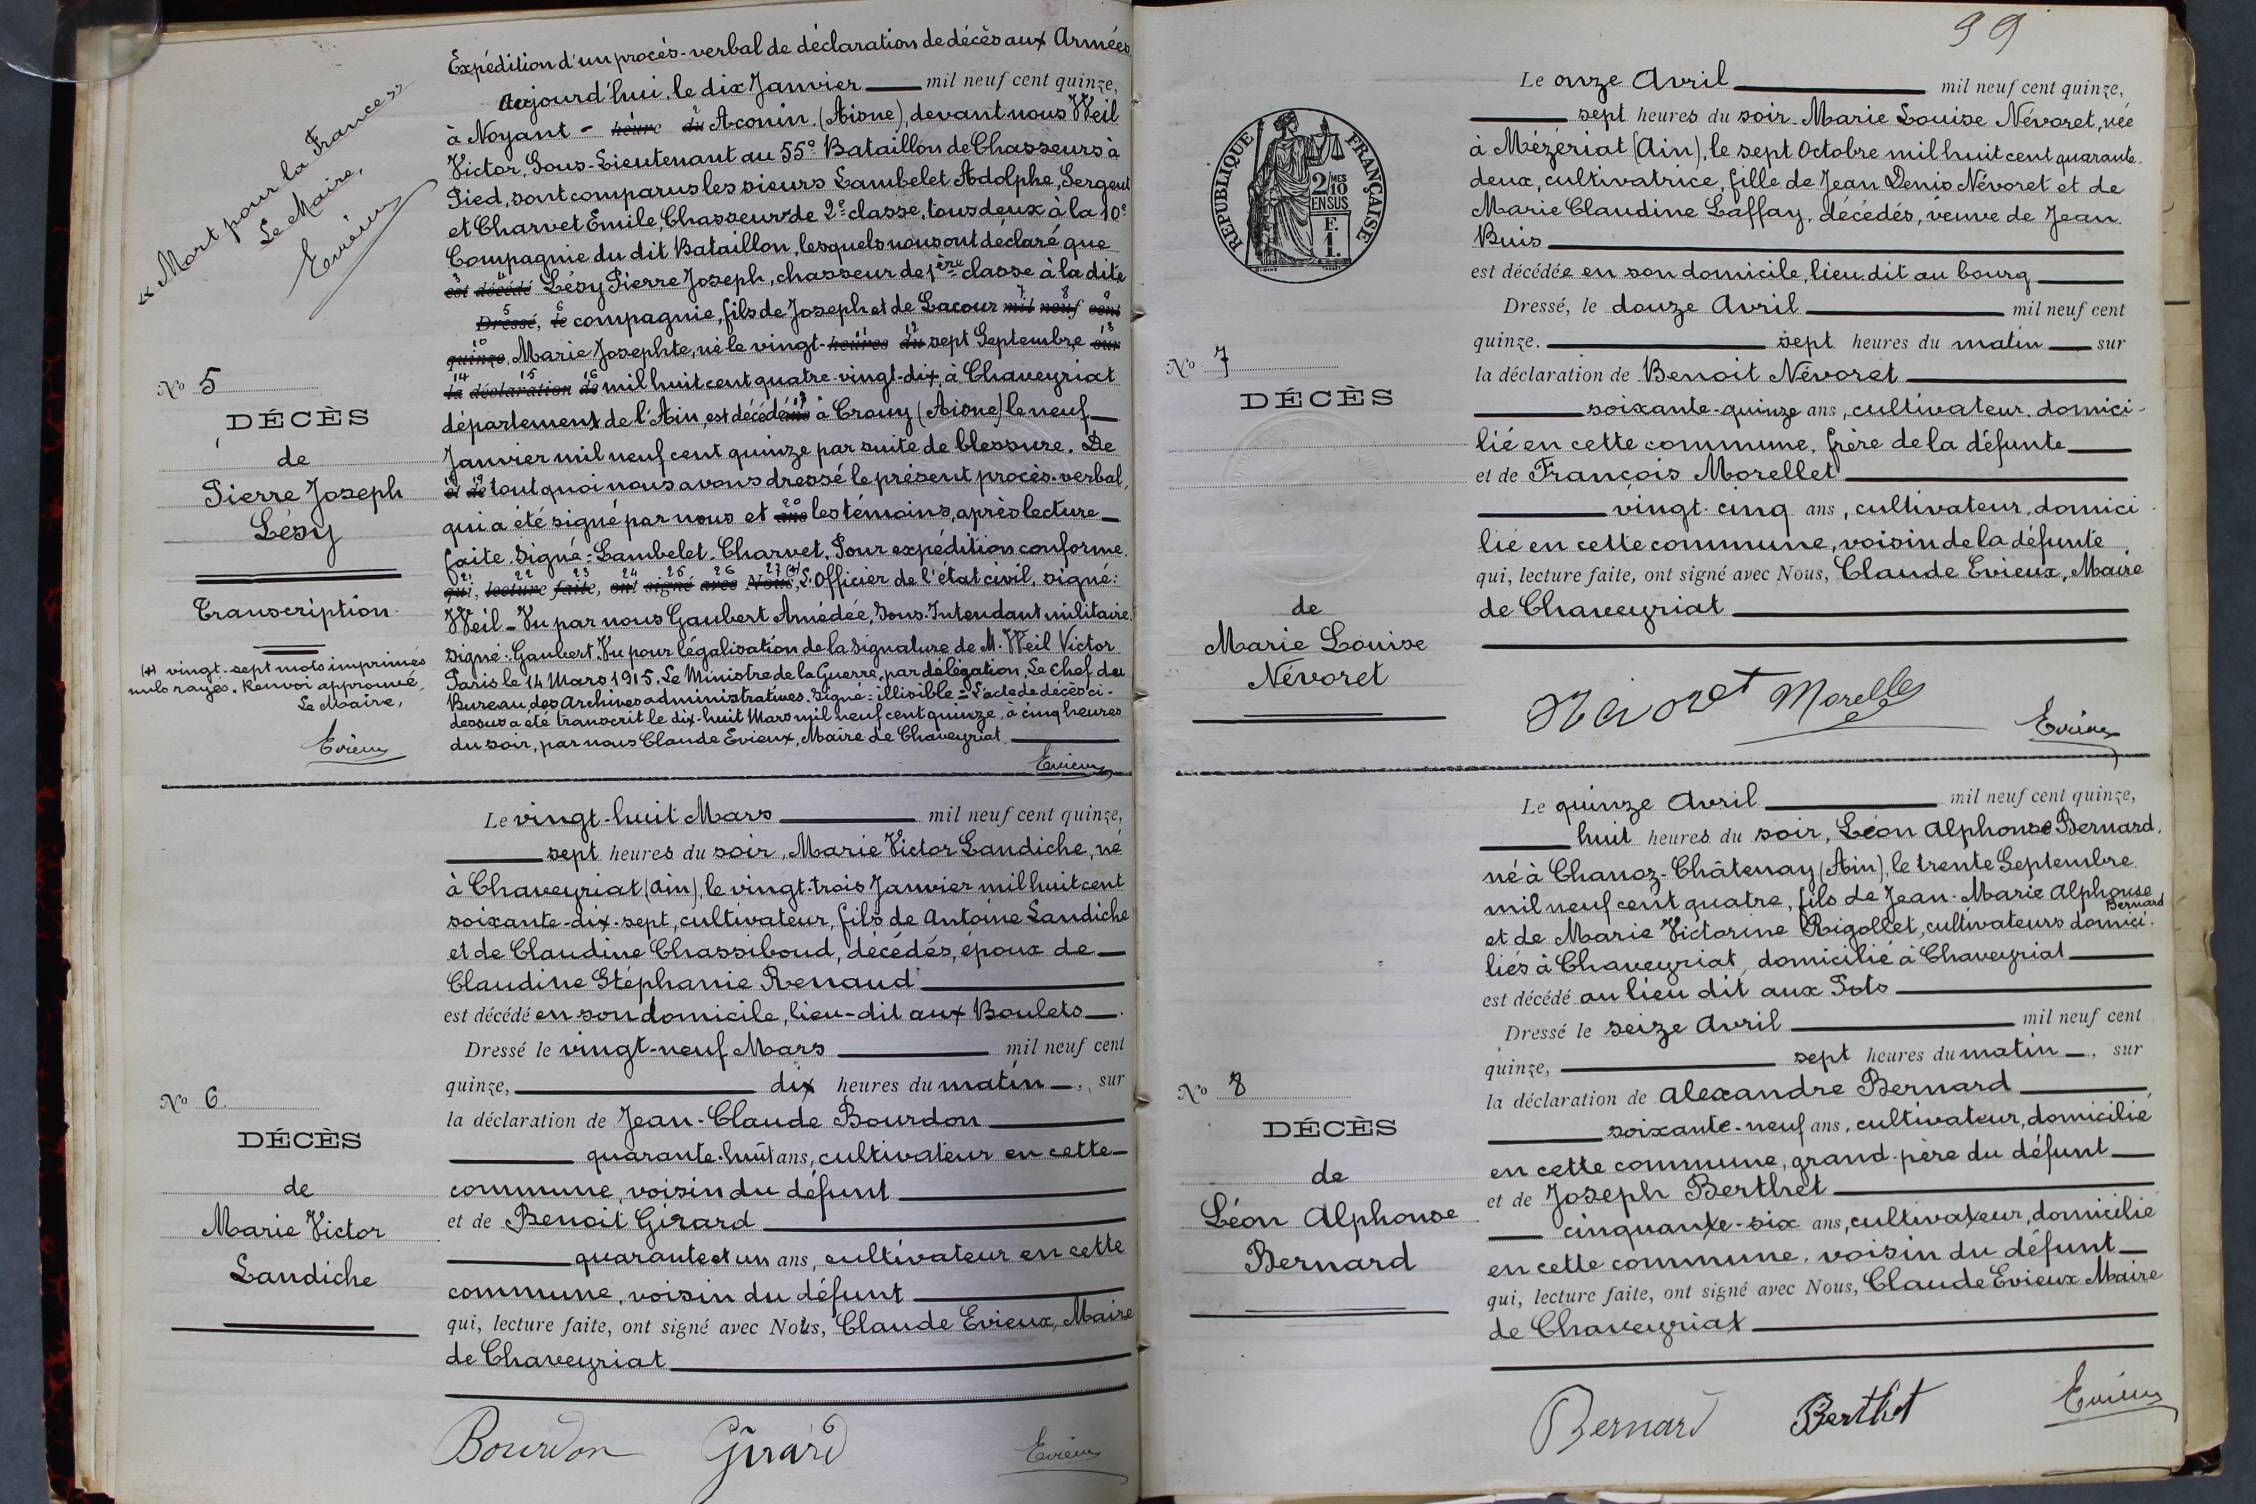 « Mort pour la France »
Le Maire,
Evieux
Expédition d'un procès-verbal de déclaration de décès aux Armées
Aujourd'hui, le dix Janvier mil neuf cent quinze,
à Noyant - heure du Aconin (Aisne), devant nous Weil
Victor, Sous-Lieutenant au 55e Bataillon de Chasseurs à
Pied, sont comparus les sieurs Lambelet Adolphe, Sergent
et Charvet Emile, Chasseur de 2e classe, tous deux à la 10e
Compagnie du dit Bataillon, lesquels nous ont déclaré que
est décédé Lésy Pierre Joseph, chasseur de 1ère classe à la dite
Dressé, le compagnie, fils de Joseph et de Lacour mil neuf cent
quinze. Marie Josephte, né le vingt-heures du sept Septembre sur
la déclaration de mil huit cent quatre-vingt-dix, à Chaveyriat
département de l'Ain, est décédé à Crouy (Aisne) le neuf
Janvier mil neuf cent quinze par suite de blessure. De
et de tout quoi nous avons dressé le présent procès-verbal,
qui a été signé par nous et ans les témoins, après lecture
faite. Signé: Lambelet. Charvet. Pour expédition conforme.
qui, lecture faite, ont signé avec Nous, (+) L'Officier de l'état civil, signé:
Weil - Vu par nous Gaubert Amédée, Sous-Intendant militaire.
Signé: Gaubert. Vu pour légalisation de la signature de M. Weil Victor
Paris le 14 Mars 1915. Le Ministre de la Guerre, par délégation, Le Chef du
Bureau des Archives administratives. Signé: illisible = L'acte de décès ci-
dessus a été transcrit le dix-huit Mars mil neuf cent quinze, à cinq heures
du soir, par nous Claude Evieux, Maire de Chaveyriat
Evieux
No 5
DÉCÈS
de
Pierre Joseph
Lésy
Transcription.
(+) vingt-sept mots imprimés
nuls rayés. Renvoi approuvé,
Le Maire,
Evieux
No 6.
DÉCÈS
de
Marie Victor
Landiche
Le vingt-huit Mars mil neuf cent quinze,
sept heures du soir, Marie Victor Landiche, né
à Chaveyriat (Ain), le vingt-trois Janvier mil huit cent
soixante-dix-sept, cultivateur, fils de Antoine Landiche
et de Claudine Chassiboud, décédés, époux de
Claudine Stéphanie Renaud
est décédé en son domicile, lieu-dit aux Boulets
Dressé le vingt-neuf Mars mil neuf cent
quinze, dix heures du matin, sur
la déclaration de Jean-Claude Bourdon
quarante-huit ans, cultivateur en cette
commune, voisin du défunt
et de Benoit Girard
quarante et un ans, cultivateur en cette
commune, voisin du défunt
qui, lecture faite, ont signé avec Nous, Claude Evieux, Maire
de Chaveyriat
Bourdon Girard Evieux
99
REPUBLIQUE FRANÇAISE
2/10 MES
EN SUS
F.
1.
No 7
DÉCÈS
de
Marie Louise
Névoret
Le onze Avril mil neuf cent quinze,
sept heures du soir. Marie Louise Névoret, née
à Mézériat (Ain), le sept Octobre mil huit cent quarante-
deux, cultivatrice, fille de Jean Denis Névoret et de
Marie Claudine Laffay, décédés, veuve de Jean
Buis
est décédée en son domicile, lieu dit au bourg
Dressé, le douze Avril mil neuf cent
quinze. sept heures du matin sur
la déclaration de Benoit Névoret
soixante-quinze ans, cultivateur, domici-
lié en cette commune, frère de la défunte
et de François Morellet
vingt-cinq ans, cultivateur, domici-
lié en cette commune, voisin de la défunte
qui, lecture faite, ont signé avec Nous, Claude Evieux, Maire
de Chaveyriat
Névoret Morellet
Evieux
No 8
DÉCÈS
de
Léon Alphonse
Bernard
Le quinze Avril mil neuf cent quinze,
huit heures du soir, Léon Alphonse Bernard,
né à Chanoz-Châtenay (Ain), le trente Septembre
mil neuf cent quatre, fils de Jean-Marie Alphonse Bernard
et de Marie Victorine Rigollet, cultivateurs domici-
liés à Chaveyriat, domicilié à Chaveyriat
est décédé au lieu dit aux Pots
Dressé le seize Avril mil neuf cent
quinze, sept heures du matin, sur
la déclaration de Alexandre Bernard
soixante-neuf ans, cultivateur, domicilié
en cette commune, grand-père du défunt
et de Joseph Berthet
cinquante-six ans, cultivateur, domicilié
en cette commune, voisin du défunt
qui, lecture faite, ont signé avec Nous, Claude Evieux Maire
de Chaveyriat
Bernard Berthet Evieux